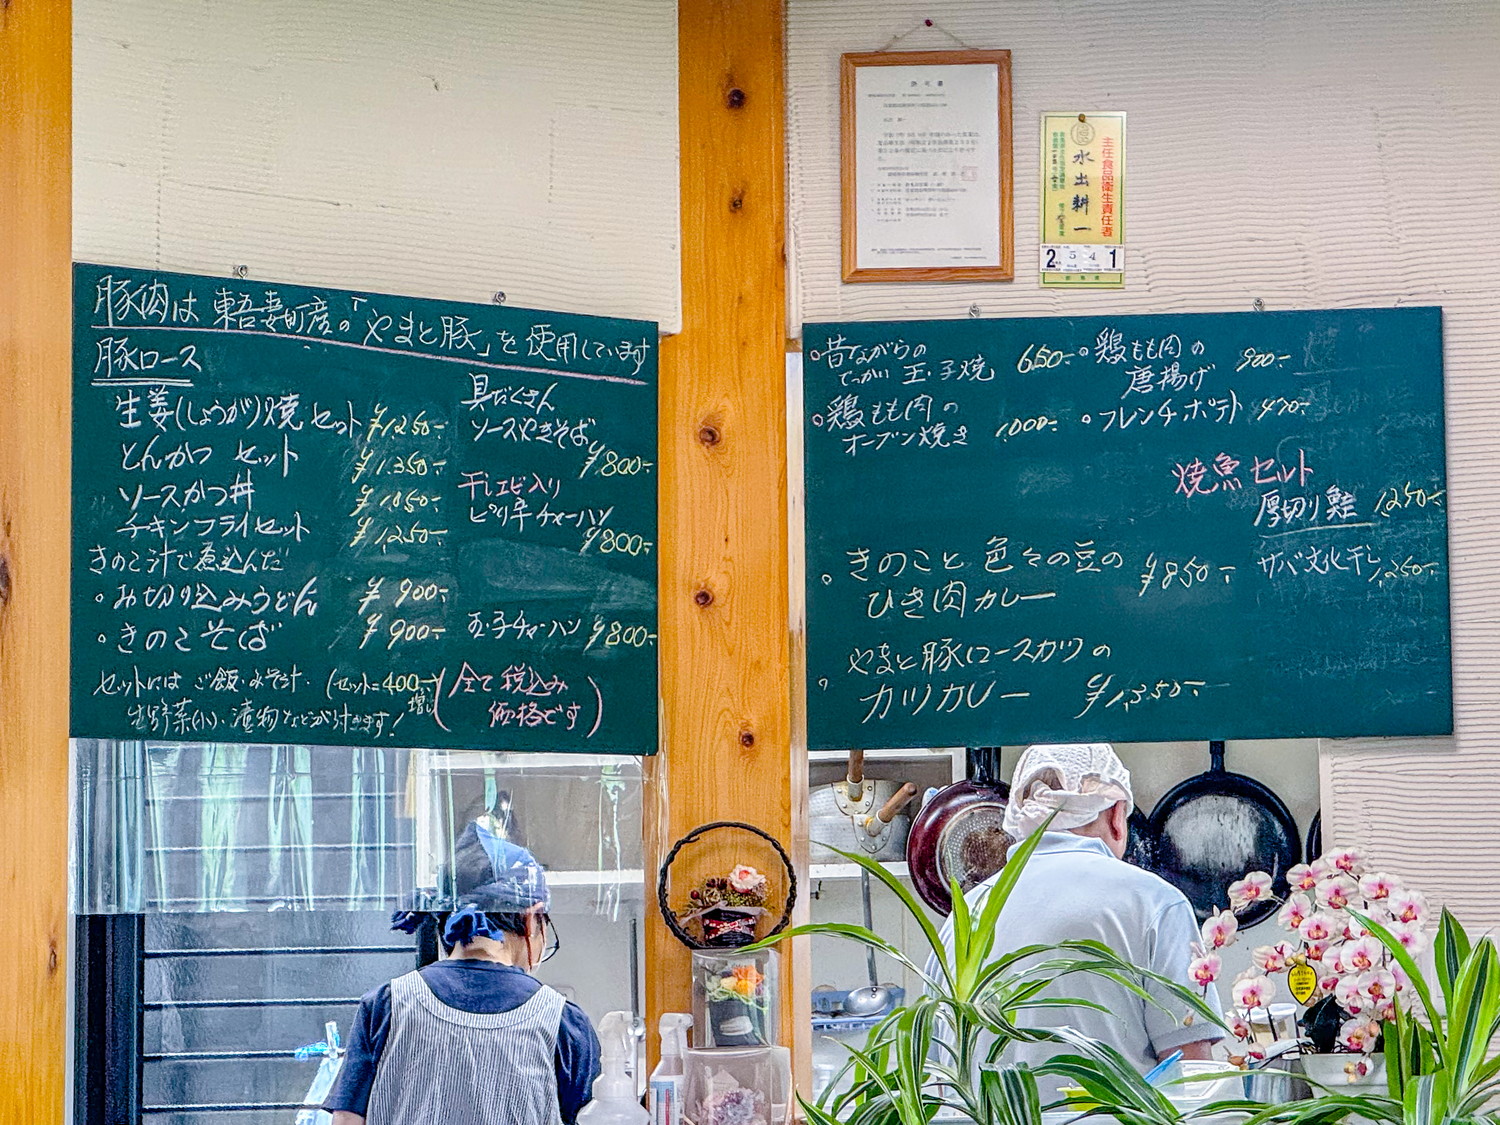 豚肉は東吾妻町産の「やまと豚」を使用しています
豚ロース
生姜(しょうが)焼セット ¥1,250-
とんかつ セット ¥1,350-
ソースかつ丼 ¥1,050-
チキンフライセット ¥1,250-
きのこ汁で煮込んだ
・お切り込みうどん ¥900-
・きのこそば ¥900-
セットには ご飯・みそ汁・ (セット=400-増し
生野菜(小)・漬物などが付きます!
具だくさん
ソースやきそば
¥800-
干しエビ入り
ピリ辛チャーハン
¥800-
玉子チャーハン ¥800-
(全て税込み
価格です)
許可書
主任食品衛生責任者
水出耕一
2 5 4 1
昔ながらの
でっかい 玉子焼 650-
鶏もも肉の
オーブン焼き 1,000-
鶏もも肉の
唐揚げ 900-
フレンチポテト 470-
焼魚セット
厚切り鮭 1,250-
サバ文化干し 1,250-
きのこと色々の豆の
ひき肉カレー ¥850-
やまと豚ロースカツの
カツカレー ¥1,350-